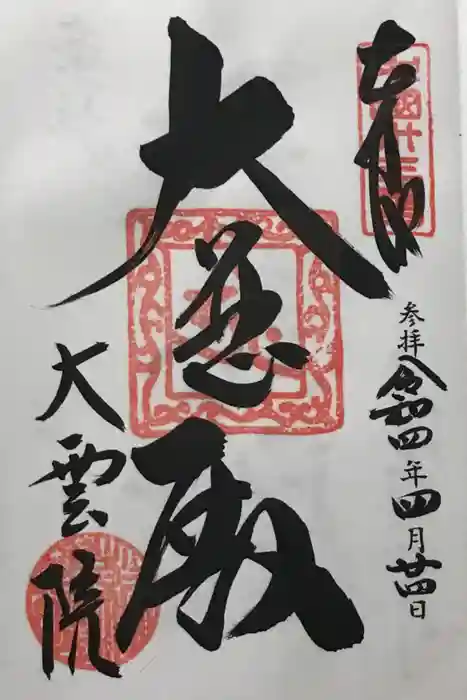 奉拝
参拝 令和四年四月廿四日
大悲殿
大雲院